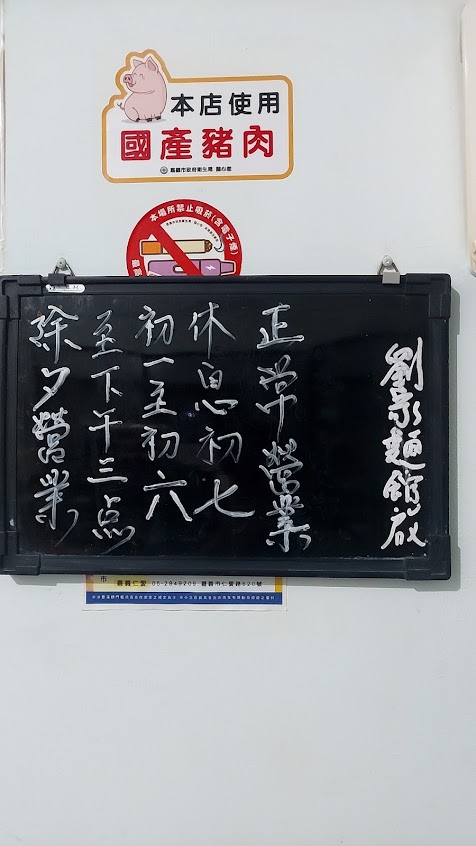 本店使用
國產豬肉
嘉義市政府衛生局 關心您
本場所禁止吸菸(含電子煙)
除夕營業
至下午三点
初一至初六
休息初七
正常營業
劉家麵館啟
市
嘉義仁愛 05-2949205 嘉義市仁愛路520號